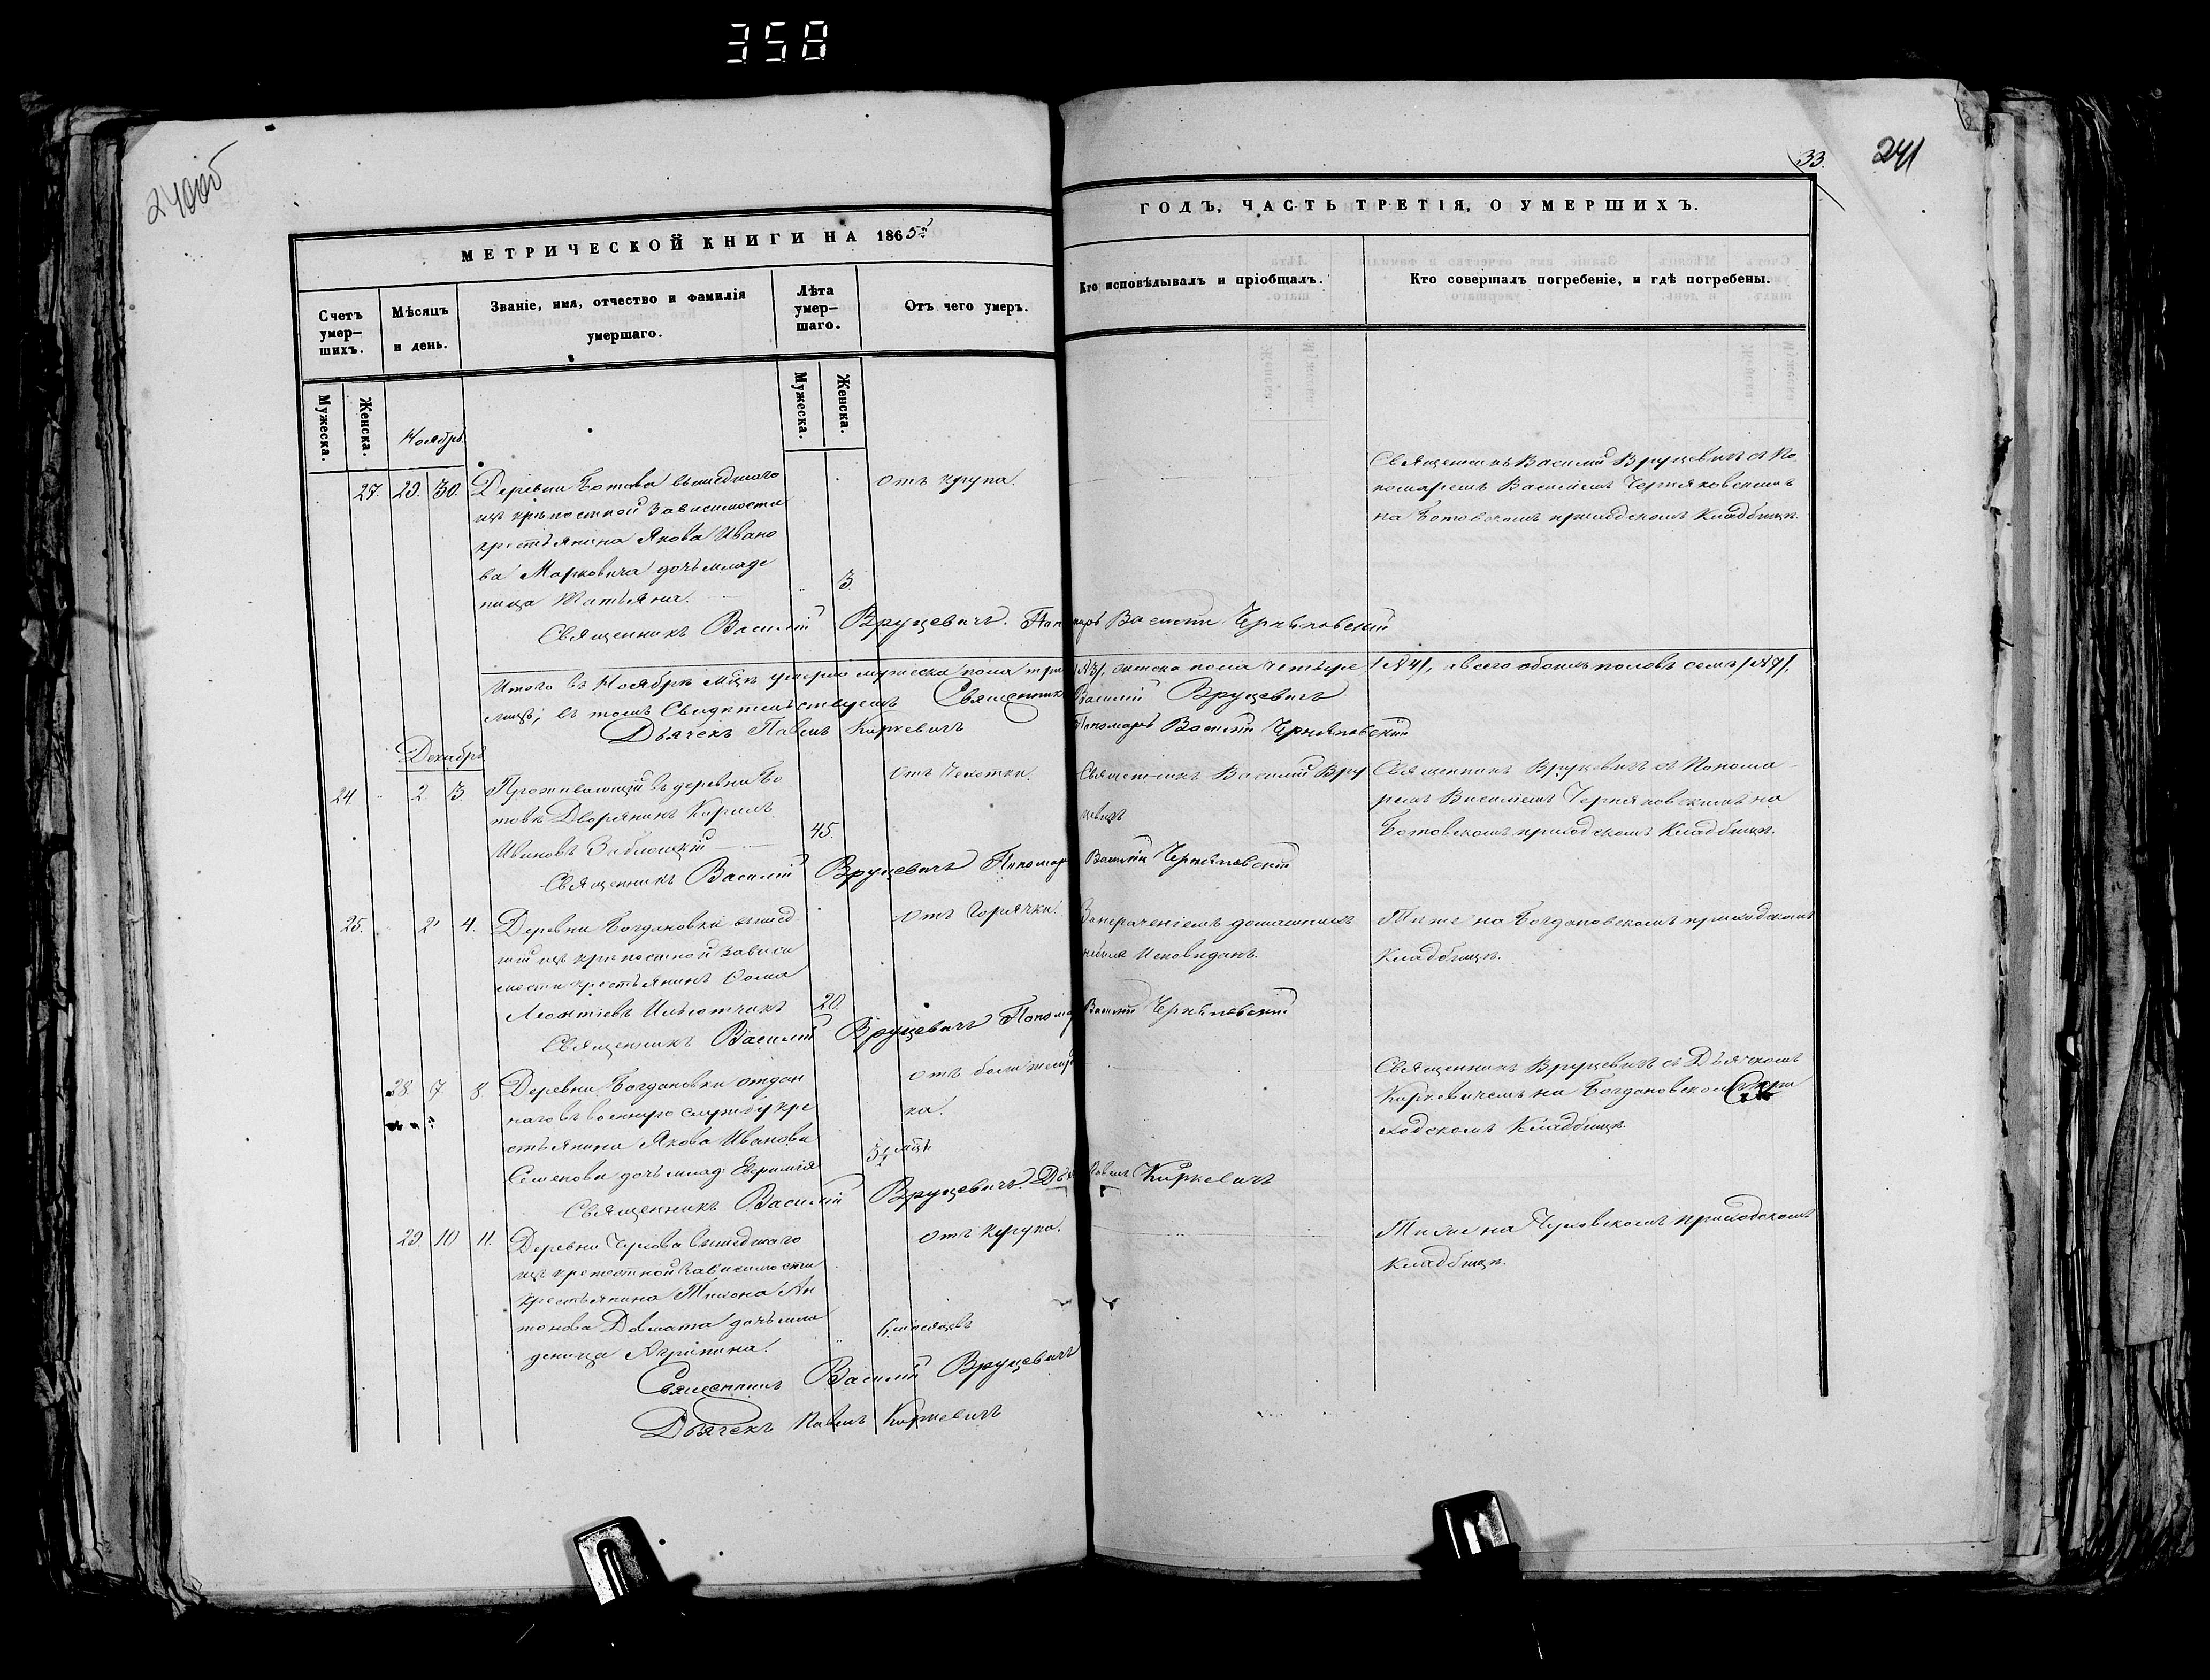 358
240об
33.
241
МЕТРИЧЕСКОЙ КНИГИ НА 1865й
ГОДЪ, ЧАСТЬ ТРЕТІЯ, О УМЕРШИХЪ.
Счетъ умер-
шихъ.
Мѣсяцъ
и день.
Званіе, имя, отчество и фамилія
умершаго.
Лѣта
умер-
шаго.
Отъ чего умеръ.
Кто исповѣдывалъ и пріобщалъ.
Кто совершалъ погребеніе, и гдѣ погребены.
Мужеска.
Женска.
Мужеска.
Женска.
Ноябрь
27. 29. 30.
Деревни Ботова вышедшаго
изъ крѣпостной зависимости
крестьянина Якова Ивано
ва Марковича дочь младе
ница Татьяна.
3.
отъ крупа.
Священникъ Василій Вруцевичъ съ По
номаремъ Василіемъ Черняковскимъ
на Ботовскомъ приходскомъ кладбищѣ.
Священникъ Василій Вруцевичъ. Пономарь Василій Черняковскій
Итого въ Ноябрѣ мцѣ умерло мужеска пола три /№3/, женска пола четыре /№4/, а всего обоихъ половъ семь /№7/,
лицъ; въ томъ свидѣтельствуемъ Священникъ Василій Вруцевичъ
Дьячекъ Павелъ Киркевичъ Пономарь Василій Черняковскій
Декабрь
24. 2. 3.
Проживающій въ деревни Бо
товѣ Дворянинъ Кирилъ
Ивановъ Заблоцкій
45.
отъ чехотки.
Священникъ Василій Вру
цевичъ
Священникъ Вруцевичъ съ Понома-
ремъ Василіемъ Черняковскимъ на
Ботовскомъ приходскомъ кладбищѣ.
Священникъ Василій Вруцевичъ Пономарь Василій Черняковскій
25. 2. 4.
Деревни Богдановки вышед
шій изъ крѣпостной зависи
мости крестьянинъ Ѳома
Леонтіевъ
20.
отъ горячки.
домашнихъ
небылъ исповѣданъ.
Тѣже на Богдановскомъ приходскомъ
кладбищѣ.
Священникъ Василій Вруцевичъ Пономарь Василій Черняковскій
28. 7 8
Деревни Богдановки отдан
наго въ военную службу кре
стьянина Якова Иванова
Семенова дочь млад: Евфимія
мцѣ
отъ боли желуд
ка.
Священникъ Вруцевичъ съ Дьячкомъ
Киркевичемъ на Богдановскомъ при
ходскомъ кладбищѣ.
Священникъ Василій Вруцевичъ. Дьячекъ Павелъ Киркевичъ
29. 10 11.
Деревни Чухова вышедшаго
изъ крѣпостной зависимости
крестьянина Тихона Ан
тонова Довмата дочь мла
деница Агрипина.
6 мѣсяцевъ
отъ крупа.
Тѣже на Чуховскомъ приходскомъ
кладбищѣ.
Священникъ Василій Вруцевичъ
Дьячекъ Павелъ Киркевичъ